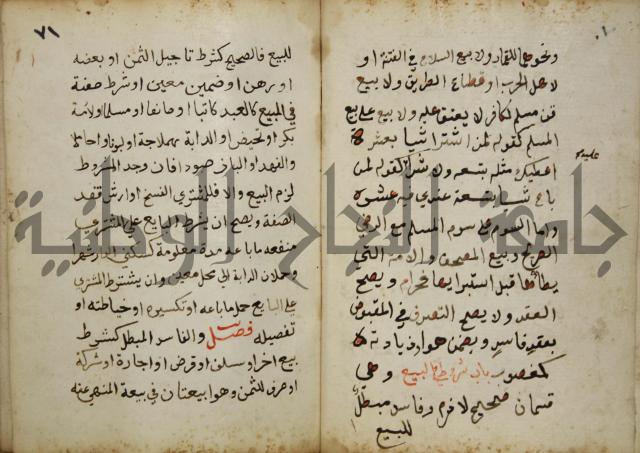 ونحوها للقمار ولا بيع السلاح في الفتنة او
لاهل الحرب او قطاع الطريق ولا بيع
قن مسلم لكافر لا يعتق عليه ولا بيع على بيع
المسلم كقوله لمن اشترا شيا بعشرة
اعطيك مثله بتسعة ولا شراء كقوله لمن
باع شيا بتسعة عندي فيه عشرة
واما السوم على سوم المسلم مع الرضى
الصريح وبيع المصحف والامة التي
يطاها قبل استبرايها فحرام ويصح
العقد ولا يصح التصرف في المقبوض
بعقد فاسد ويضمن هو وزيادته
كمغصوب باب شروط البيع وهي
قسمان صحيح لازم وفاسد مبطل
للبيع
٧١
للبيع فالصحيح كشرط تاجيل الثمن او بعضه
او رهن او ضمين معين او شرط صفة
في المبيع كالعبد كاتبا او صانعا او مسلما والامة
بكر او تحيض والدابة هملاجة او لبونا او حاملا
والفهد او البازي صيودا فان وجد المشروط
لزم البيع والا فللمشتري الفسخ او ارش فقد
الصفة ويصح ان يشرط البايع على المشتري
منفعة ما باعه مدة معلومة كسكنى الدار شهرا
وحملان الدابة الى محل معين وان يشترط المشتري
على البايع حمل ما باعه او تكسيره او خياطته او
تفصيله فصل والفاسد المبطل كشرط
بيع اخر او سلف او قرض او اجارة او شركة
او صرف للثمن وهو بيعتان في بيعة المنهي عنه
جامعة النجاح الوطنية